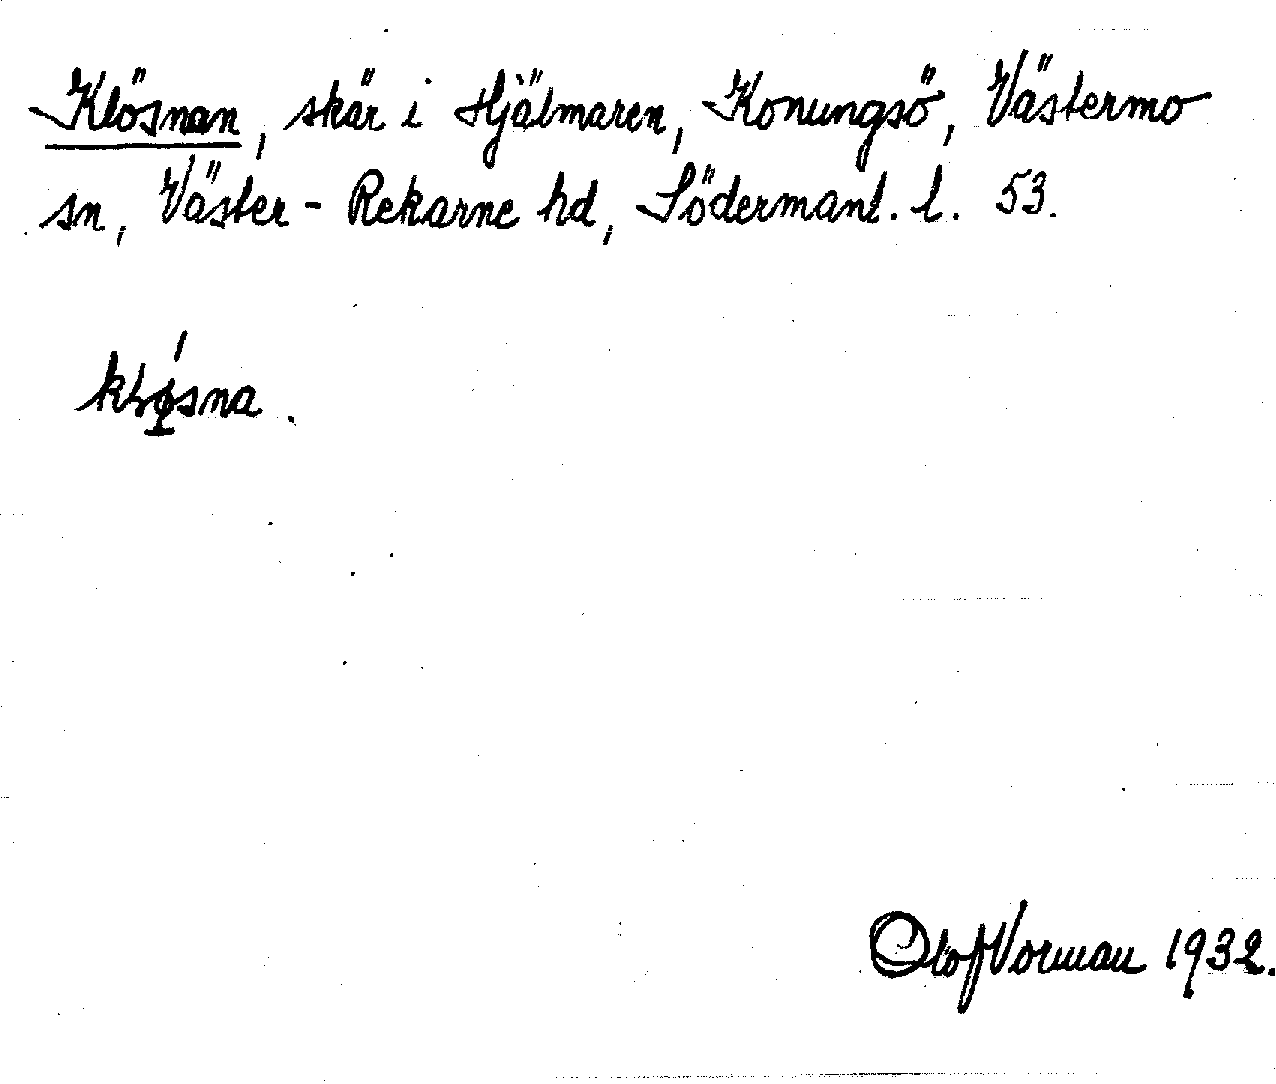 Klösnan, skär i Hjälmaren, Konungsö, Västermo
sn, Väster-Rekarne hd, Södermanl. l. 53.
Olof Vorman 1932.